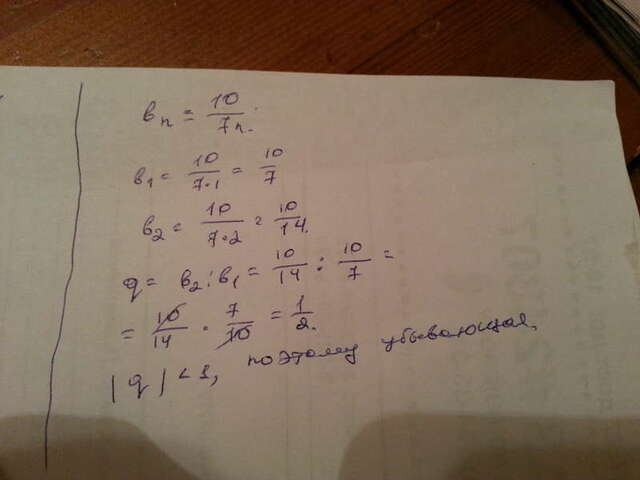 bₙ = 10/7n.
b₁ = 10/7·1 = 10/7
b₂ = 10/7·2 = 10/14.
q = b₂ : b₁ = 10/14 : 10/7 =
= 10/14 · 7/10 = 1/2.
|q| < 1, поэтому убывающая.